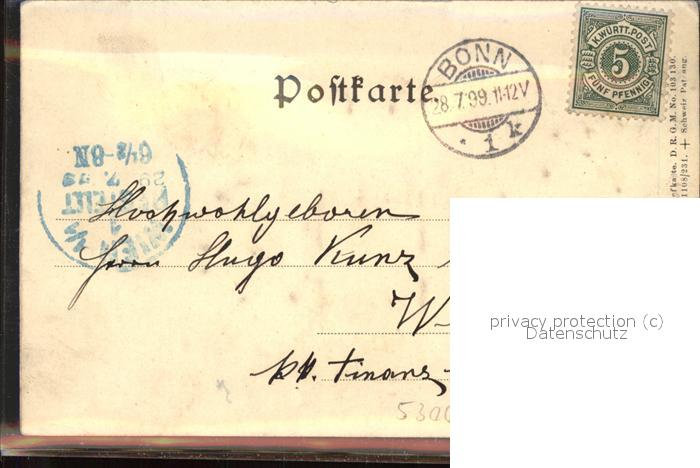 Postkarte
BONN
28.7.99.11-12V
* 1 k
K.WÜRTT.POST
5
FÜNF PFENNIG
D. R. G. M. No. 103 130.
1108/231. + Schweiz Pat. ang.
6½-8N
29.7.99
BESTELLT
WIEN
Hochwohlgeboren
Herrn Hugo Kunz
W
k.k. Finanz-
privacy protection (c)
Datenschutz